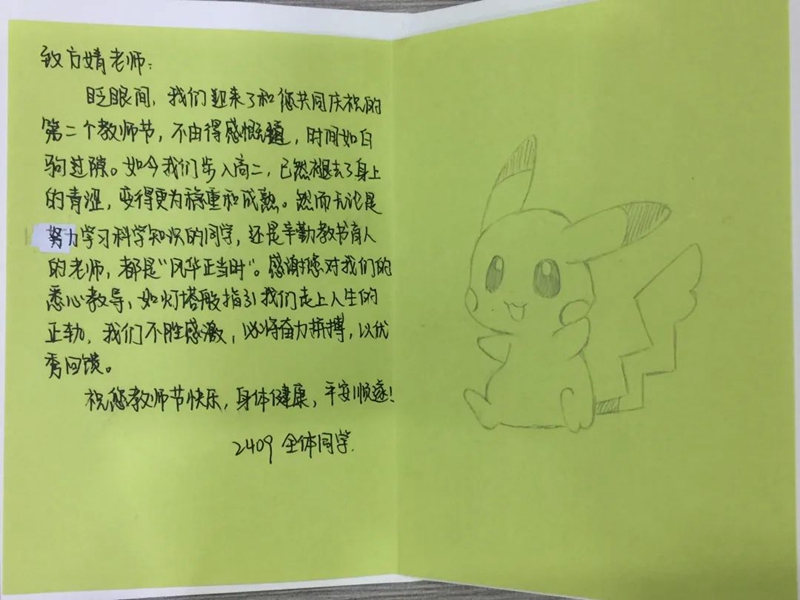 致方婧老师：
眨眼间，我们迎来了和您共同庆祝的
第二个教师节，不由得感慨，时间如白
驹过隙。如今我们步入高二，已然褪去了身上
的青涩，变得更为稳重和成熟。然而无论是
努力学习科学知识的同学，还是辛勤教书育人
的老师，都是“风华正当时”。感谢您对我们的
悉心教导，如灯塔般指引我们走上人生的
正轨，我们不胜感激，必将奋力拼搏，以优
秀回馈。
祝您教师节快乐，身体健康，平安顺遂！
2409 全体同学.